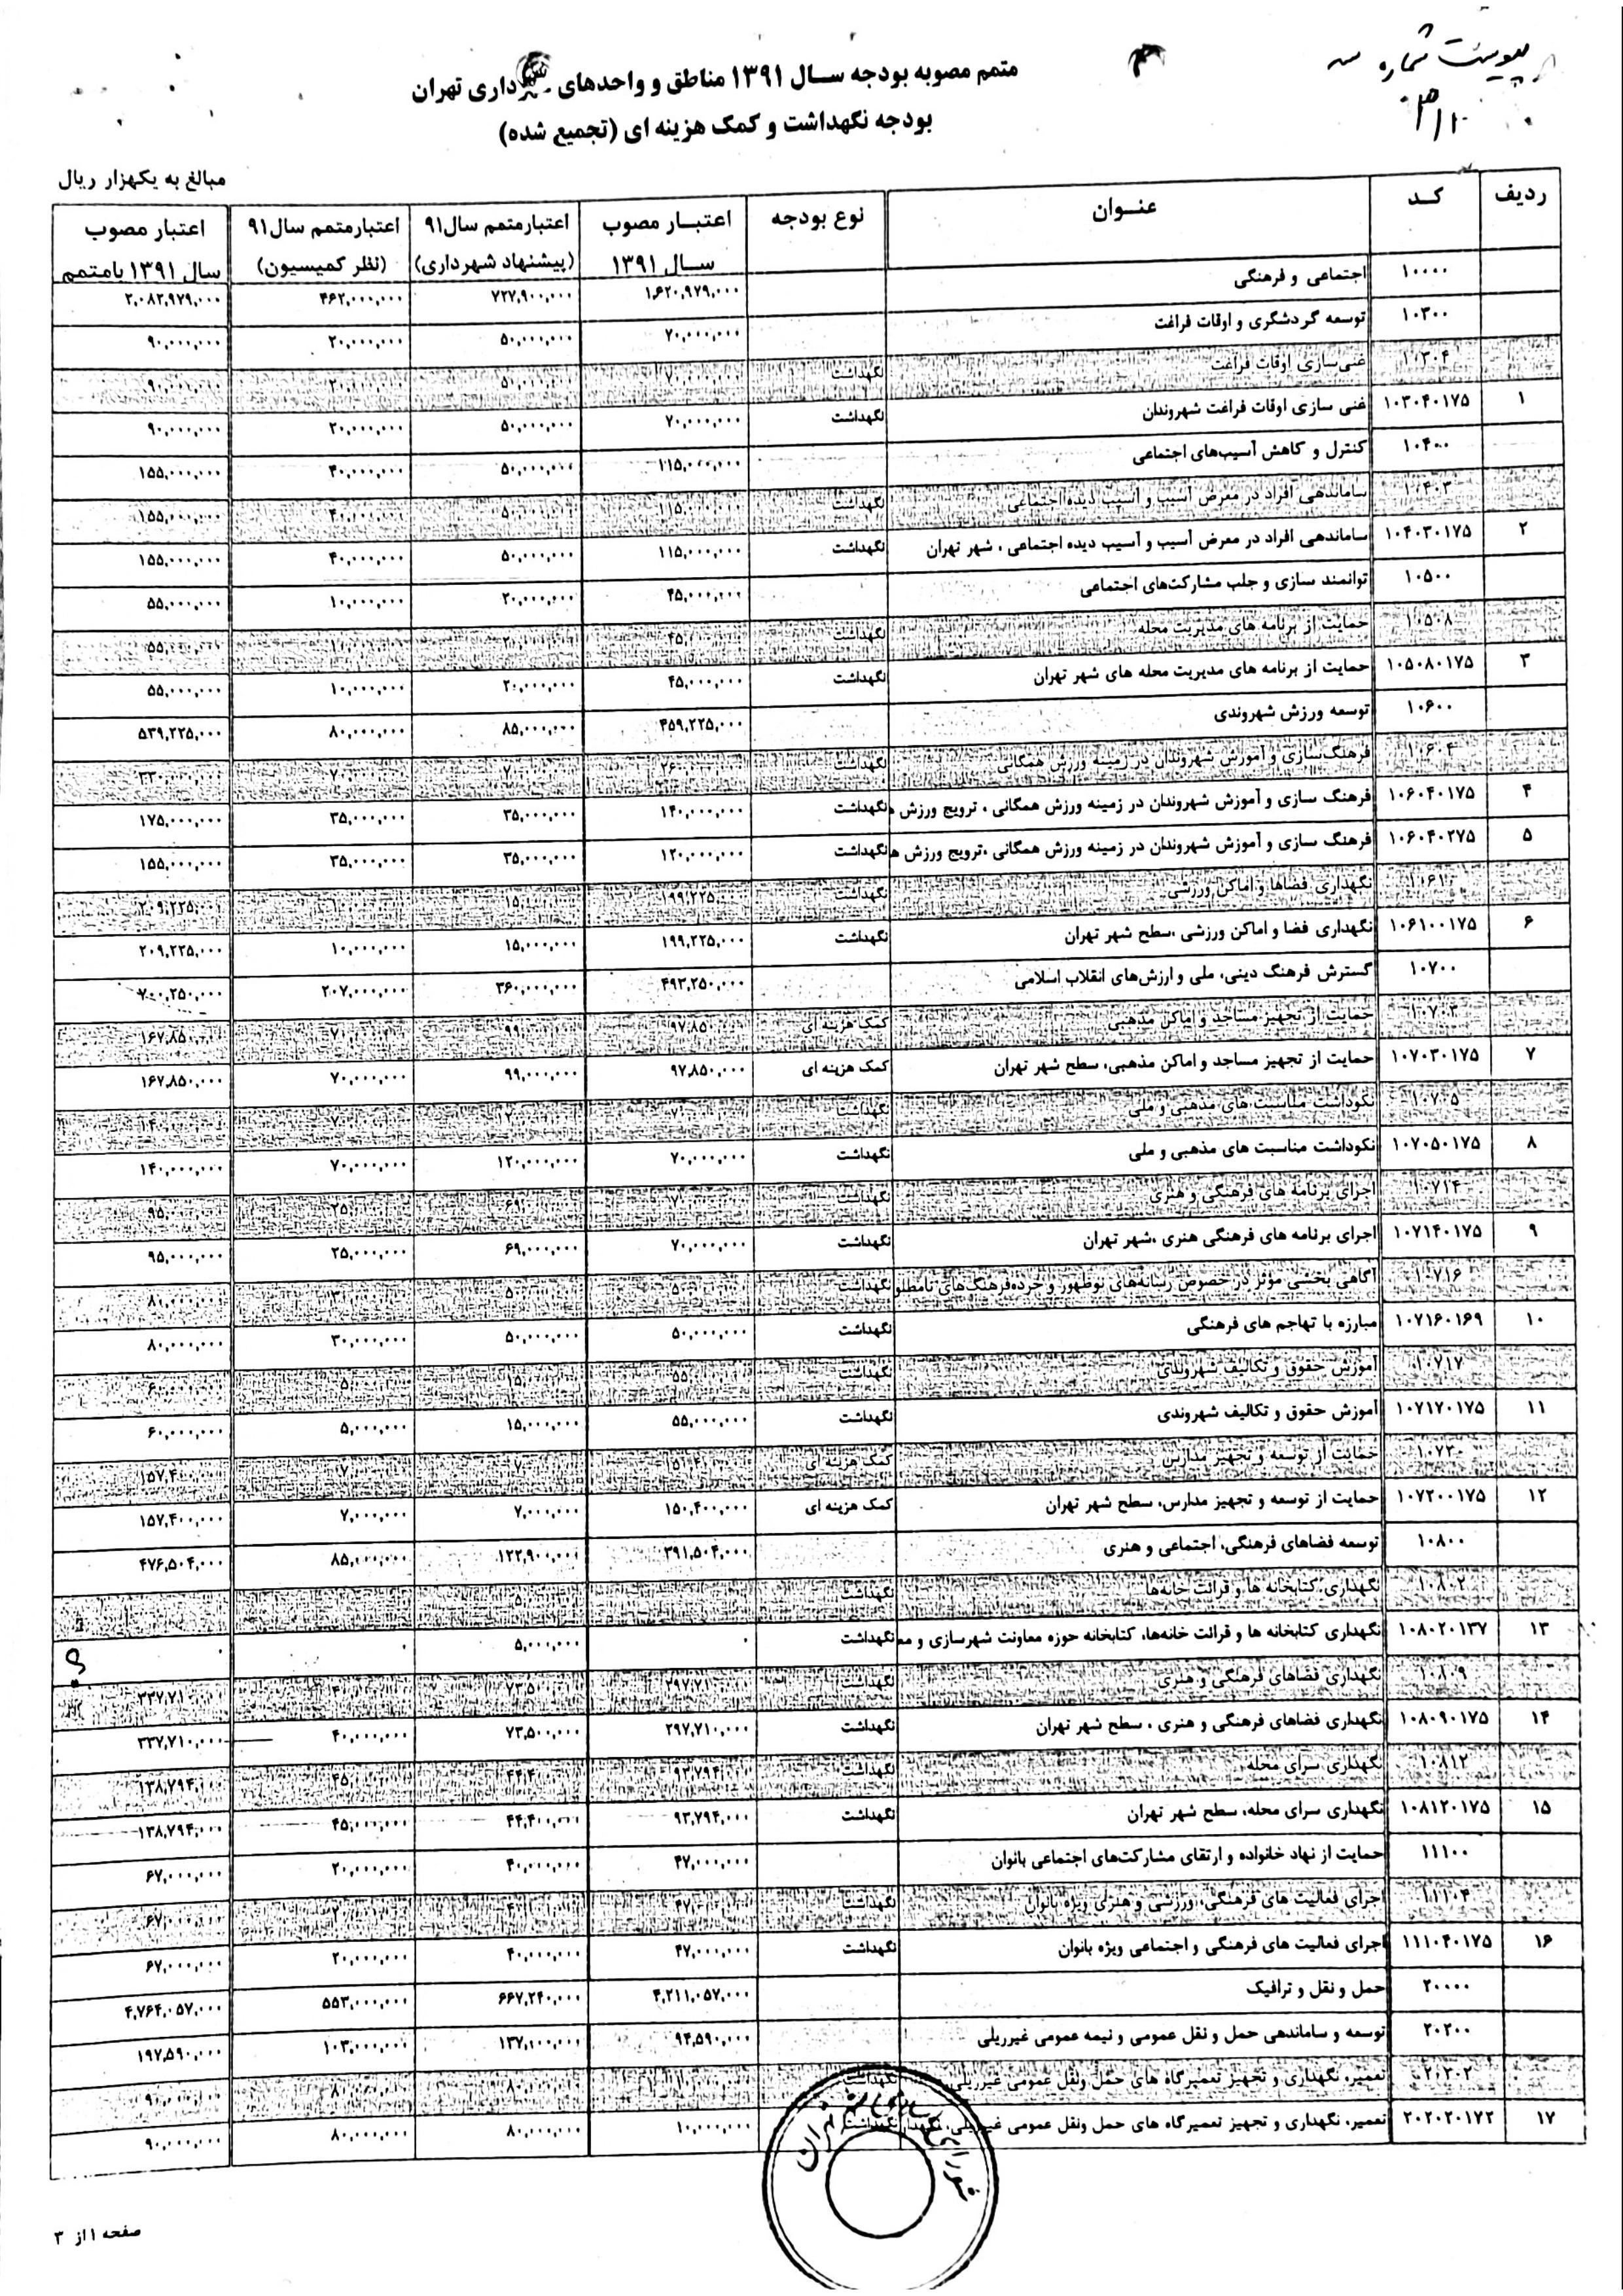 پیوست شماره سه
متمم مصوبه بودجه ســال ۱۳۹۱ مناطق و واحدهای شهرداری تهران
بودجه نگهداشت و کمک هزینه ای (تجمیع شده)
مبالغ به یکهزار ریال
ردیف کـد عنـوان نوع بودجه اعتبـار مصوب ســال ۱۳۹۱ اعتبارمتمم سال۹۱ (پیشنهاد شهرداری) اعتبارمتمم سال۹۱ (نظر کمیسیون) اعتبار مصوب سال ۱۳۹۱ بامتمم
۱۰۰۰۰ اجتماعی و فرهنگی ۱,۶۲۰,۹۷۹,۰۰۰ ۷۲۷,۹۰۰,۰۰۰ ۴۶۲,۰۰۰,۰۰۰ ۲,۰۸۲,۹۷۹,۰۰۰
۱۰۳۰۰ توسعه گردشگری و اوقات فراغت ۷۰,۰۰۰,۰۰۰ ۵۰,۰۰۰,۰۰۰ ۲۰,۰۰۰,۰۰۰ ۹۰,۰۰۰,۰۰۰
۱۰۳۰۴ غنی‌سازی اوقات فراغت نگهداشت ۷۰,۰۰۰,۰۰۰ ۵۰,۰۰۰,۰۰۰ ۲۰,۰۰۰,۰۰۰ ۹۰,۰۰۰,۰۰۰
۱ ۱۰۳۰۴۰۱۷۵ غنی سازی اوقات فراغت شهروندان نگهداشت ۷۰,۰۰۰,۰۰۰ ۵۰,۰۰۰,۰۰۰ ۲۰,۰۰۰,۰۰۰ ۹۰,۰۰۰,۰۰۰
۱۰۴۰۰ کنترل و کاهش آسیب‌های اجتماعی ۱۱۵,۰۰۰,۰۰۰ ۵۰,۰۰۰,۰۰۰ ۴۰,۰۰۰,۰۰۰ ۱۵۵,۰۰۰,۰۰۰
۱۰۴۰۳ ساماندهی افراد در معرض آسیب و آسیب دیده اجتماعی نگهداشت ۱۱۵,۰۰۰,۰۰۰ ۵۰,۰۰۰,۰۰۰ ۴۰,۰۰۰,۰۰۰ ۱۵۵,۰۰۰,۰۰۰
۲ ۱۰۴۰۳۰۱۷۵ ساماندهی افراد در معرض آسیب و آسیب دیده اجتماعی ، شهر تهران نگهداشت ۱۱۵,۰۰۰,۰۰۰ ۵۰,۰۰۰,۰۰۰ ۴۰,۰۰۰,۰۰۰ ۱۵۵,۰۰۰,۰۰۰
۱۰۵۰۰ توانمند سازی و جلب مشارکت‌های اجتماعی ۴۵,۰۰۰,۰۰۰ ۲۰,۰۰۰,۰۰۰ ۱۰,۰۰۰,۰۰۰ ۵۵,۰۰۰,۰۰۰
۱۰۵۰۸ حمایت از برنامه های مدیریت محله نگهداشت ۴۵,۰۰۰,۰۰۰ ۲۰,۰۰۰,۰۰۰ ۱۰,۰۰۰,۰۰۰ ۵۵,۰۰۰,۰۰۰
۳ ۱۰۵۰۸۰۱۷۵ حمایت از برنامه های مدیریت محله های شهر تهران نگهداشت ۴۵,۰۰۰,۰۰۰ ۲۰,۰۰۰,۰۰۰ ۱۰,۰۰۰,۰۰۰ ۵۵,۰۰۰,۰۰۰
۱۰۶۰۰ توسعه ورزش شهروندی ۴۵۹,۲۲۵,۰۰۰ ۸۵,۰۰۰,۰۰۰ ۸۰,۰۰۰,۰۰۰ ۵۳۹,۲۲۵,۰۰۰
۱۰۶۰۴ فرهنگ‌سازی و آموزش شهروندان در زمینه ورزش همگانی نگهداشت ۲۶۰,۰۰۰,۰۰۰ ۷۰,۰۰۰,۰۰۰ ۷۰,۰۰۰,۰۰۰ ۳۳۰,۰۰۰,۰۰۰
۴ ۱۰۶۰۴۰۱۷۵ فرهنگ سازی و آموزش شهروندان در زمینه ورزش همگانی ، ترویج ورزش ه نگهداشت ۱۴۰,۰۰۰,۰۰۰ ۳۵,۰۰۰,۰۰۰ ۳۵,۰۰۰,۰۰۰ ۱۷۵,۰۰۰,۰۰۰
۵ ۱۰۶۰۴۰۲۷۵ فرهنگ سازی و آموزش شهروندان در زمینه ورزش همگانی ،ترویج ورزش ه نگهداشت ۱۲۰,۰۰۰,۰۰۰ ۳۵,۰۰۰,۰۰۰ ۳۵,۰۰۰,۰۰۰ ۱۵۵,۰۰۰,۰۰۰
۱۰۶۱۰ نگهداری فضاها و اماکن ورزشی نگهداشت ۱۹۹,۲۲۵,۰۰۰ ۱۵,۰۰۰,۰۰۰ ۱۰,۰۰۰,۰۰۰ ۲۰۹,۲۲۵,۰۰۰
۶ ۱۰۶۱۰۰۱۷۵ نگهداری فضا و اماکن ورزشی ،سطح شهر تهران نگهداشت ۱۹۹,۲۲۵,۰۰۰ ۱۵,۰۰۰,۰۰۰ ۱۰,۰۰۰,۰۰۰ ۲۰۹,۲۲۵,۰۰۰
۱۰۷۰۰ گسترش فرهنگ دینی، ملی و ارزش‌های انقلاب اسلامی ۴۹۳,۲۵۰,۰۰۰ ۳۶۰,۰۰۰,۰۰۰ ۲۰۷,۰۰۰,۰۰۰ ۷۰۰,۲۵۰,۰۰۰
۱۰۷۰۳ حمایت از تجهیز مساجد و اماکن مذهبی کمک هزینه ای ۹۷,۸۵۰,۰۰۰ ۹۹,۰۰۰,۰۰۰ ۷۰,۰۰۰,۰۰۰ ۱۶۷,۸۵۰,۰۰۰
۷ ۱۰۷۰۳۰۱۷۵ حمایت از تجهیز مساجد و اماکن مذهبی، سطح شهر تهران کمک هزینه ای ۹۷,۸۵۰,۰۰۰ ۹۹,۰۰۰,۰۰۰ ۷۰,۰۰۰,۰۰۰ ۱۶۷,۸۵۰,۰۰۰
۱۰۷۰۵ نکوداشت مناسبت های مذهبی و ملی نگهداشت ۷۰,۰۰۰,۰۰۰ ۱۲۰,۰۰۰,۰۰۰ ۷۰,۰۰۰,۰۰۰ ۱۴۰,۰۰۰,۰۰۰
۸ ۱۰۷۰۵۰۱۷۵ نکوداشت مناسبت های مذهبی و ملی نگهداشت ۷۰,۰۰۰,۰۰۰ ۱۲۰,۰۰۰,۰۰۰ ۷۰,۰۰۰,۰۰۰ ۱۴۰,۰۰۰,۰۰۰
۱۰۷۱۴ اجرای برنامه های فرهنگی و هنری نگهداشت ۷۰,۰۰۰,۰۰۰ ۶۹,۰۰۰,۰۰۰ ۲۵,۰۰۰,۰۰۰ ۹۵,۰۰۰,۰۰۰
۹ ۱۰۷۱۴۰۱۷۵ اجرای برنامه های فرهنگی هنری ،شهر تهران نگهداشت ۷۰,۰۰۰,۰۰۰ ۶۹,۰۰۰,۰۰۰ ۲۵,۰۰۰,۰۰۰ ۹۵,۰۰۰,۰۰۰
۱۰۷۱۶ آگاهی بخشی مؤثر در خصوص رسانه‌های نوظهور و خرده‌فرهنگ‌های نامطلو نگهداشت ۵۰,۰۰۰,۰۰۰ ۵۰,۰۰۰,۰۰۰ ۳۰,۰۰۰,۰۰۰ ۸۰,۰۰۰,۰۰۰
۱۰ ۱۰۷۱۶۰۱۶۹ مبارزه با تهاجم های فرهنگی نگهداشت ۵۰,۰۰۰,۰۰۰ ۵۰,۰۰۰,۰۰۰ ۳۰,۰۰۰,۰۰۰ ۸۰,۰۰۰,۰۰۰
۱۰۷۱۷ آموزش حقوق و تکالیف شهروندی نگهداشت ۵۵,۰۰۰,۰۰۰ ۱۵,۰۰۰,۰۰۰ ۵,۰۰۰,۰۰۰ ۶۰,۰۰۰,۰۰۰
۱۱ ۱۰۷۱۷۰۱۷۵ آموزش حقوق و تکالیف شهروندی نگهداشت ۵۵,۰۰۰,۰۰۰ ۱۵,۰۰۰,۰۰۰ ۵,۰۰۰,۰۰۰ ۶۰,۰۰۰,۰۰۰
۱۰۷۲۰ حمایت از توسعه و تجهیز مدارس کمک هزینه ای ۱۵۰,۴۰۰,۰۰۰ ۷,۰۰۰,۰۰۰ ۷,۰۰۰,۰۰۰ ۱۵۷,۴۰۰,۰۰۰
۱۲ ۱۰۷۲۰۰۱۷۵ حمایت از توسعه و تجهیز مدارس، سطح شهر تهران کمک هزینه ای ۱۵۰,۴۰۰,۰۰۰ ۷,۰۰۰,۰۰۰ ۷,۰۰۰,۰۰۰ ۱۵۷,۴۰۰,۰۰۰
۱۰۸۰۰ توسعه فضاهای فرهنگی، اجتماعی و هنری ۳۹۱,۵۰۴,۰۰۰ ۱۲۲,۹۰۰,۰۰۰ ۸۵,۰۰۰,۰۰۰ ۴۷۶,۵۰۴,۰۰۰
۱۰۸۰۲ نگهداری کتابخانه ها و قرائت خانه‌ها نگهداشت
۱۳ ۱۰۸۰۲۰۱۳۷ نگهداری کتابخانه ها و قرائت خانه‌ها، کتابخانه حوزه معاونت شهرسازی و مع نگهداشت ۰ ۵,۰۰۰,۰۰۰ ۰ ۰
۱۰۸۰۹ نگهداری فضاهای فرهنگی و هنری نگهداشت ۲۹۷,۷۱۰,۰۰۰ ۷۳,۵۰۰,۰۰۰ ۴۰,۰۰۰,۰۰۰ ۳۳۷,۷۱۰,۰۰۰
۱۴ ۱۰۸۰۹۰۱۷۵ نگهداری فضاهای فرهنگی و هنری ، سطح شهر تهران نگهداشت ۲۹۷,۷۱۰,۰۰۰ ۷۳,۵۰۰,۰۰۰ ۴۰,۰۰۰,۰۰۰ ۳۳۷,۷۱۰,۰۰۰
۱۰۸۱۲ نگهداری سرای محله نگهداشت ۹۳,۷۹۴,۰۰۰ ۴۴,۴۰۰,۰۰۰ ۴۵,۰۰۰,۰۰۰ ۱۳۸,۷۹۴,۰۰۰
۱۵ ۱۰۸۱۲۰۱۷۵ نگهداری سرای محله، سطح شهر تهران نگهداشت ۹۳,۷۹۴,۰۰۰ ۴۴,۴۰۰,۰۰۰ ۴۵,۰۰۰,۰۰۰ ۱۳۸,۷۹۴,۰۰۰
۱۱۱۰۰ حمایت از نهاد خانواده و ارتقای مشارکت‌های اجتماعی بانوان ۴۷,۰۰۰,۰۰۰ ۴۰,۰۰۰,۰۰۰ ۲۰,۰۰۰,۰۰۰ ۶۷,۰۰۰,۰۰۰
۱۱۱۰۴ اجرای فعالیت های فرهنگی، ورزشی و هنری ویژه بانوان نگهداشت ۴۷,۰۰۰,۰۰۰ ۴۰,۰۰۰,۰۰۰ ۲۰,۰۰۰,۰۰۰ ۶۷,۰۰۰,۰۰۰
۱۶ ۱۱۱۰۴۰۱۷۵ اجرای فعالیت های فرهنگی و اجتماعی ویژه بانوان نگهداشت ۴۷,۰۰۰,۰۰۰ ۴۰,۰۰۰,۰۰۰ ۲۰,۰۰۰,۰۰۰ ۶۷,۰۰۰,۰۰۰
۲۰۰۰۰ حمل و نقل و ترافیک ۴,۲۱۱,۰۵۷,۰۰۰ ۶۶۷,۲۴۰,۰۰۰ ۵۵۳,۰۰۰,۰۰۰ ۴,۷۶۴,۰۵۷,۰۰۰
۲۰۲۰۰ توسعه و ساماندهی حمل و نقل عمومی و نیمه عمومی غیرریلی ۹۴,۵۹۰,۰۰۰ ۱۳۷,۱۰۰,۰۰۰ ۱۰۳,۰۰۰,۰۰۰ ۱۹۷,۵۹۰,۰۰۰
۲۰۲۰۲ تعمیر، نگهداری و تجهیز تعمیرگاه های حمل ونقل عمومی غیرریلی نگهداشت ۸۰,۰۰۰,۰۰۰ ۸۰,۰۰۰,۰۰۰ ۹۰,۰۰۰,۰۰۰
۱۷ ۲۰۲۰۲۰۱۷۲ تعمیر، نگهداری و تجهیز تعمیرگاه های حمل ونقل عمومی غیرریلی، نگهدار نگهداشت ۱۰,۰۰۰,۰۰۰ ۸۰,۰۰۰,۰۰۰ ۸۰,۰۰۰,۰۰۰ ۹۰,۰۰۰,۰۰۰
صفحه ۱ از ۳